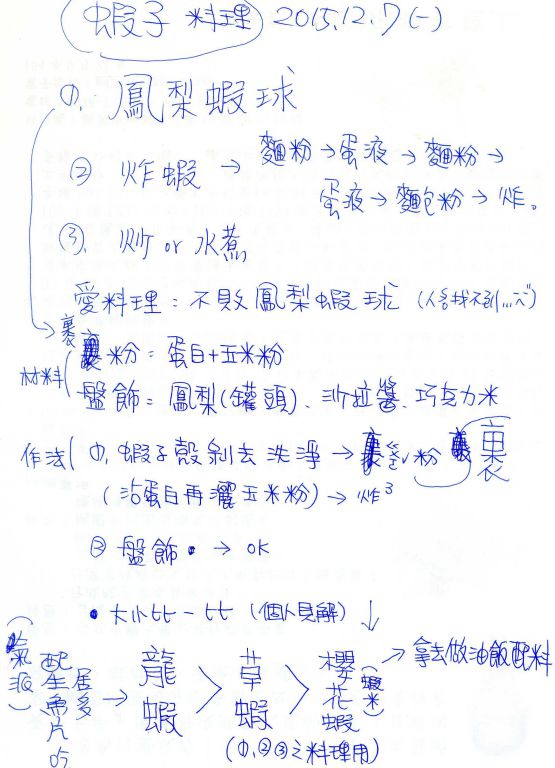 蝦子 料理 2015.12.7(一)
①. 鳳梨蝦球
② 炸蝦 → 麵粉→蛋液→麵粉→
蛋液→麵包粉→炸。
③. 炒 or 水煮
愛料理：不敗鳳梨蝦球 (人名找不到...
裹粉：蛋白+玉米粉
材料
盤飾：鳳梨(罐頭)、沙拉醬、巧克力米
作法 ①. 蝦子殼剝去洗淨→裹粉 裹
(沾蛋白再灑玉米粉)→炸
② 盤飾 → OK
• 大小比一比 (個人見解)
龍蝦 > 草蝦 > 櫻花蝦 (蝦米) → 拿去做油飯配料
配生魚片吃
居多 →
(①,②③之料理用)